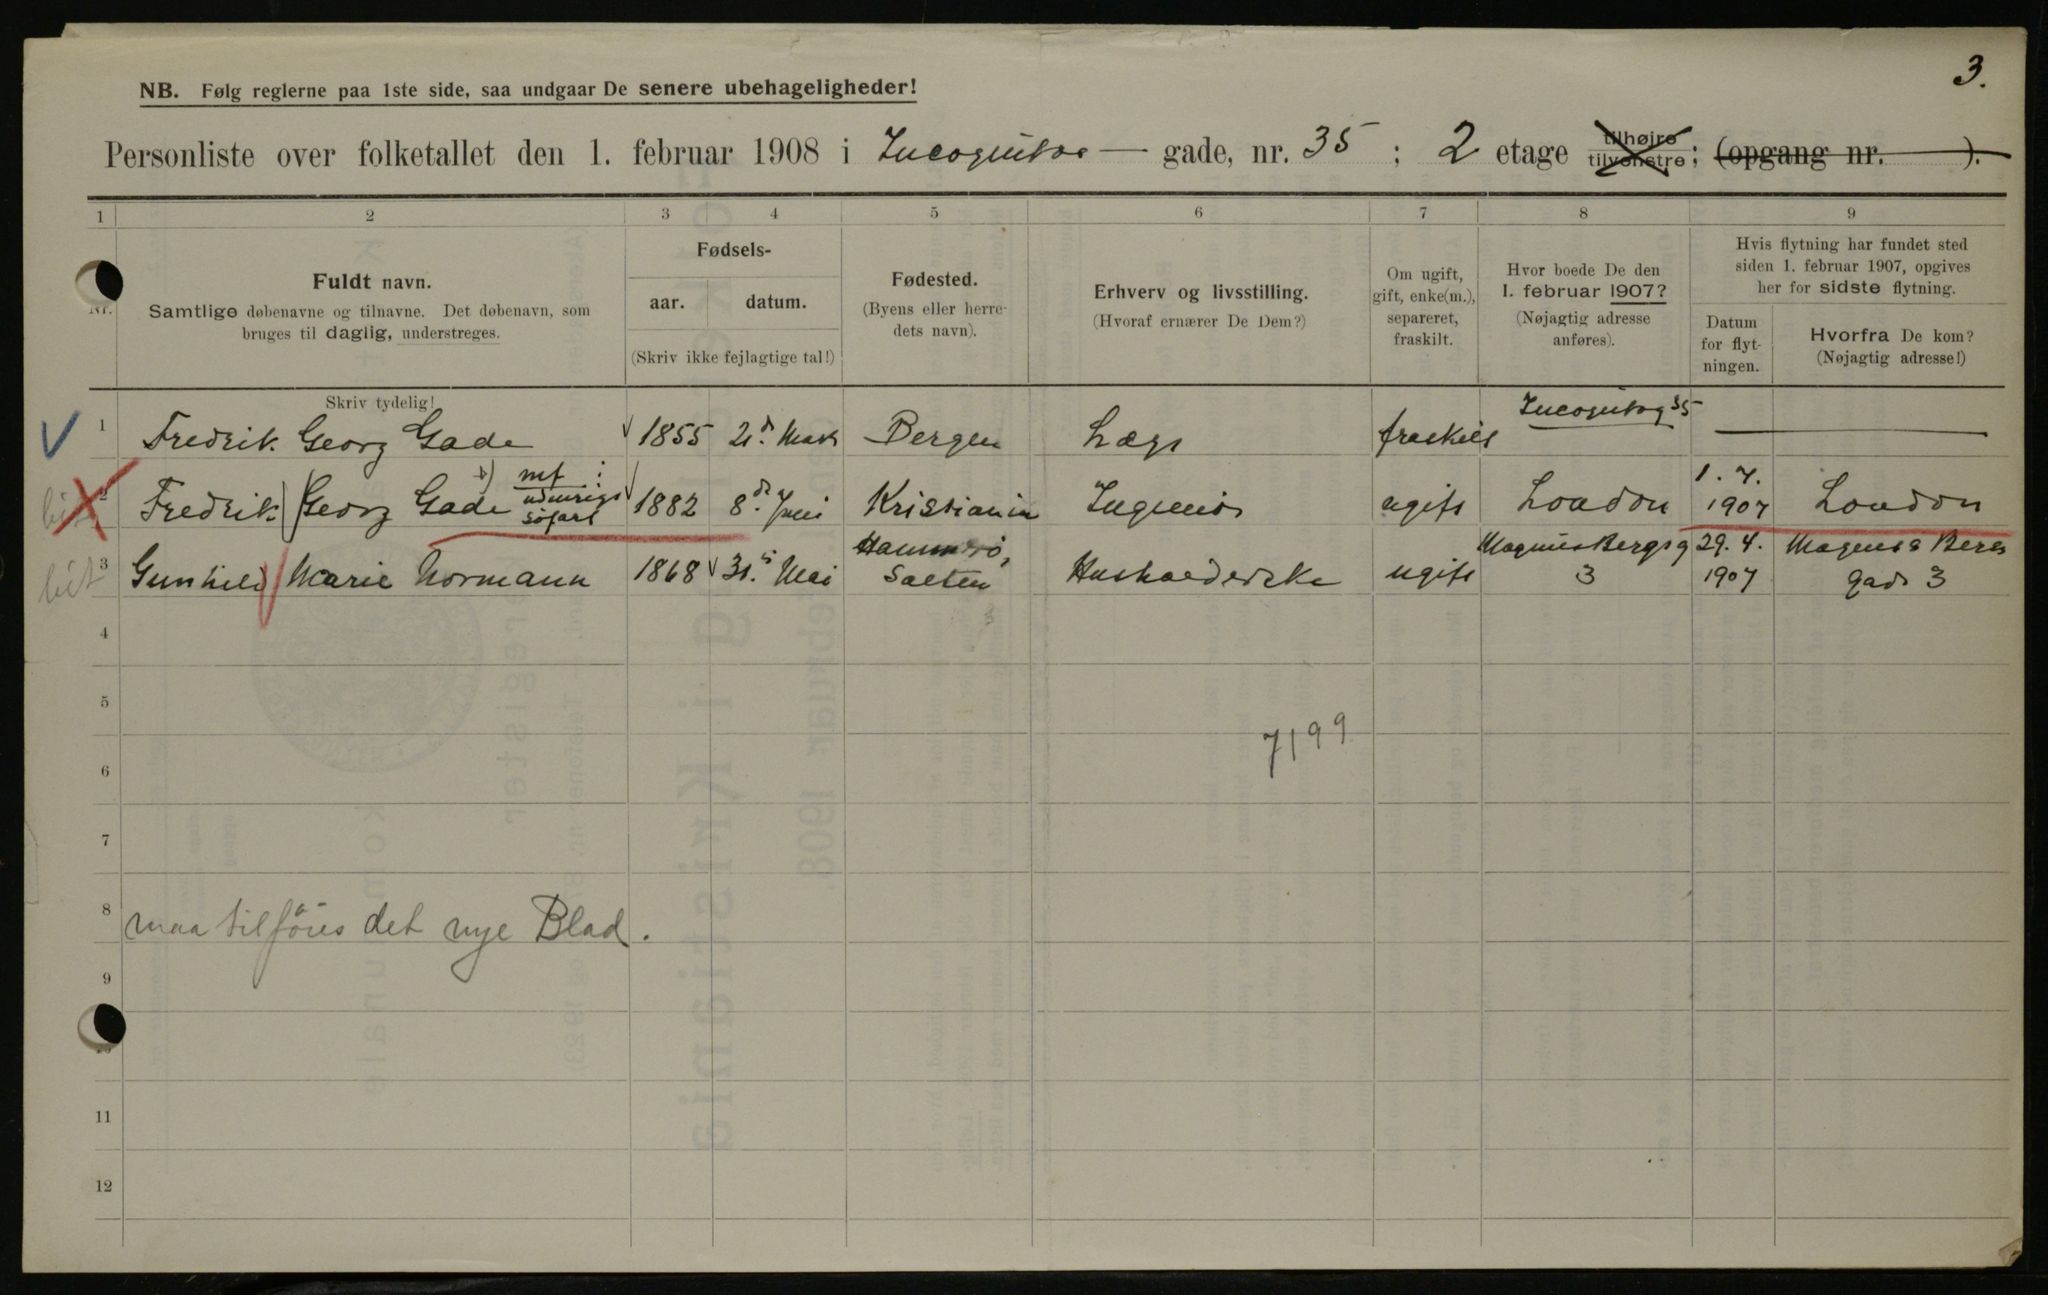 3.
NB. Følg reglerne paa 1ste side, saa undgaar De senere ubehageligheder!
Personliste over folketallet den 1. februar 1908 i Incognitos — gade, nr. 35 ; 2 etage tilhøjre tilvenstre ; (opgang nr. ).
1 2 3 4 5 6 7 8 9
Nr.
Fuldt navn.
Samtlige døbenavne og tilnavne. Det døbenavn, som
bruges til daglig, understreges.
Fødsels-
aar. datum.
(Skriv ikke fejlagtige tal!)
Fødested.
(Byens eller herre-
dets navn).
Erhverv og livsstilling.
(Hvoraf ernærer De Dem?)
Om ugift,
gift, enke(m.),
separeret,
fraskilt.
Hvor boede De den
1. februar 1907?
(Nøjagtig adresse
anføres).
Hvis flytning har fundet sted
siden 1. februar 1907, opgives
her for sidste flytning.
Datum
for flyt-
ningen.
Hvorfra De kom?
(Nøjagtig adresse!)
Skriv tydelig!
1 Fredrik Georg Gade 1855 21d. Mars Bergen Læge fraskilt Incognitog 35
2 Fredrik Georg Gade mf udenrigs søfart 1882 8d. Juni Kristiania Ingeniør ugift London 1. 7. 1907 London
3 Gunhild Marie Normann 1868 31. Mai Hammerø, Salten Husholderske ugift Magnus Bergsg 3 29. 4. 1907 Magnus Bergs Gade 3
4
5
6
7199
7
8
maa tilføies det nye Blad.
9
11
12